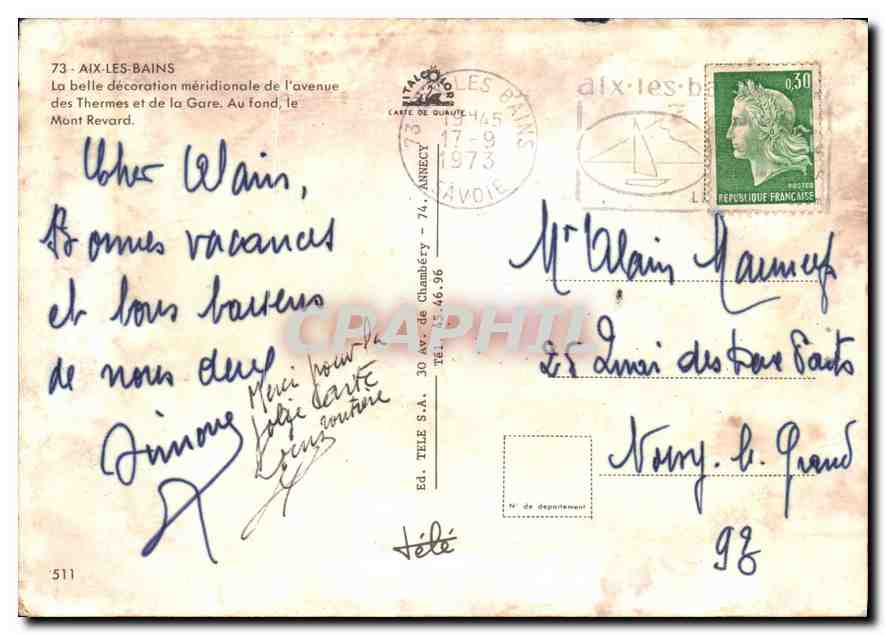 73 - AIX-LES-BAINS
La belle décoration méridionale de l'avenue
des Thermes et de la Gare. Au fond, le
Mont Revard.
ITALCOLOR
CARTE DE QUALITE
73 LES BAINS
17-9
1973
SAVOIE
aix·les·b
0,30
POSTES
REPUBLIQUE FRANÇAISE
Cher Alain,
Bonnes vacances
et bons baisers
de nous deux
Simone
Merci pour la
jolie carte
CPARHIL
Ed. TELE S.A. 30 Av. de Chambéry - 74. ANNECY
Tél. 45.46.96
Mr Alain
25 Quai des
Noisy-le-Grand
N° de département
télé
511